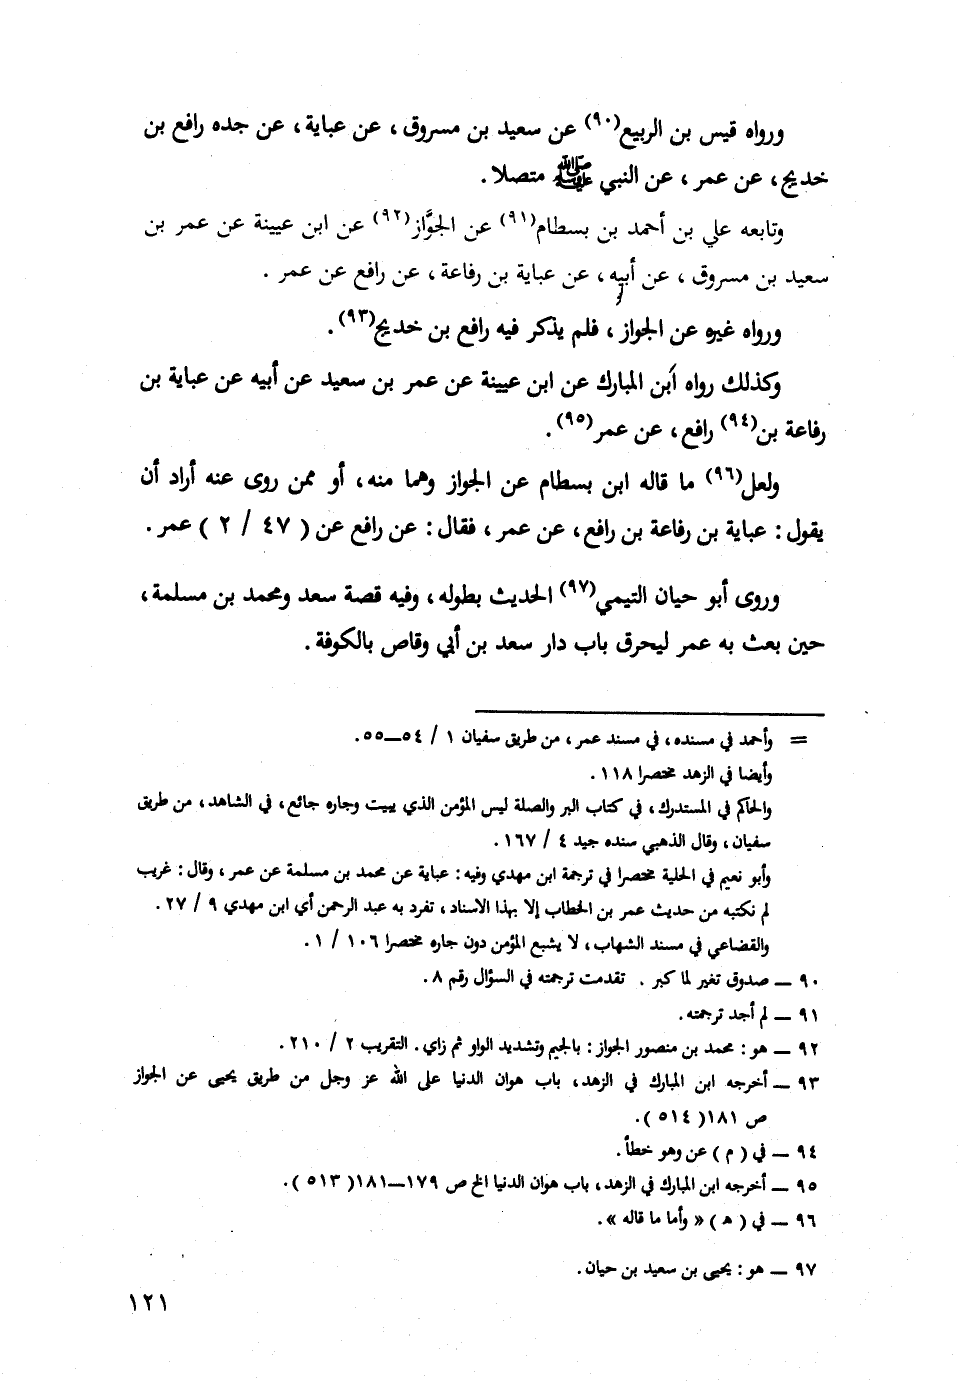 ورواه قيس بن الربيع(٩٠) عن سعيد بن مسروق، عن عباية، عن جده رافع بن
خديج، عن عمر، عن النبي ﷺ متصلا.
وتابعه علي بن أحمد بن بسطام(٩١) عن الجوَّاز(٩٢) عن ابن عيينة عن عمر بن
سعيد بن مسروق، عن أبيه، عن عباية بن رفاعة، عن رافع عن عمر.
ورواه غيره عن الجواز، فلم يذكر فيه رافع بن خديج(٩٣).
وكذلك رواه ابن المبارك عن ابن عيينة عن عمر بن سعيد عن أبيه عن عباية بن
رفاعة بن(٩٤) رافع، عن عمر(٩٥).
ولعل(٩٦) ما قاله ابن بسطام عن الجواز وهما منه، أو ممن روى عنه أراد أن
يقول: عباية بن رفاعة بن رافع، عن عمر، فقال: عن رافع عن (٤٧ / ٢) عمر.
وروى أبو حيان التيمي(٩٧) الحديث بطوله، وفيه قصة سعد ومحمد بن مسلمة،
حين بعث به عمر ليحرق باب دار سعد بن أبي وقاص بالكوفة.
= وأحمد في مسنده، في مسند عمر، من طريق سفيان ١ / ٥٤—٥٥.
وأيضا في الزهد مختصرا ١١٨.
والحاكم في المستدرك، في كتاب البر والصلة ليس المؤمن الذي يبيت وجاره جائع، في الشاهد، من طريق
سفيان، وقال الذهبي سنده جيد ٤ / ١٦٧.
وأبو نعيم في الحلية مختصرا في ترجمة ابن مهدي وفيه: عباية عن محمد بن مسلمة عن عمر، وقال: غريب
لم نكتبه من حديث عمر بن الخطاب إلا بهذا الاسناد، تفرد به عبد الرحمن أي ابن مهدي ٩ / ٢٧.
والقضاعي في مسند الشهاب، لا يشبع المؤمن دون جاره مختصرا ١٠٦ / ١.
٩٠ — صدوق تغير لما كبر. تقدمت ترجمته في السؤال رقم ٨.
٩١ — لم أجد ترجمته.
٩٢ — هو: محمد بن منصور الجواز: بالجيم وتشديد الواو ثم زاي. التقريب ٢ / ٢١٠.
٩٣ — أخرجه ابن المبارك في الزهد، باب هوان الدنيا على الله عز وجل من طريق يحيى عن الجواز
ص ١٨١(٥١٤).
٩٤ — في (م) عن وهو خطأ.
٩٥ — أخرجه ابن المبارك في الزهد، باب هوان الدنيا الخ ص ١٧٩—١٨١(٥١٣).
٩٦ — في (هـ) « وأما ما قاله ».
٩٧ — هو: يحيى بن سعيد بن حيان.
١٢١